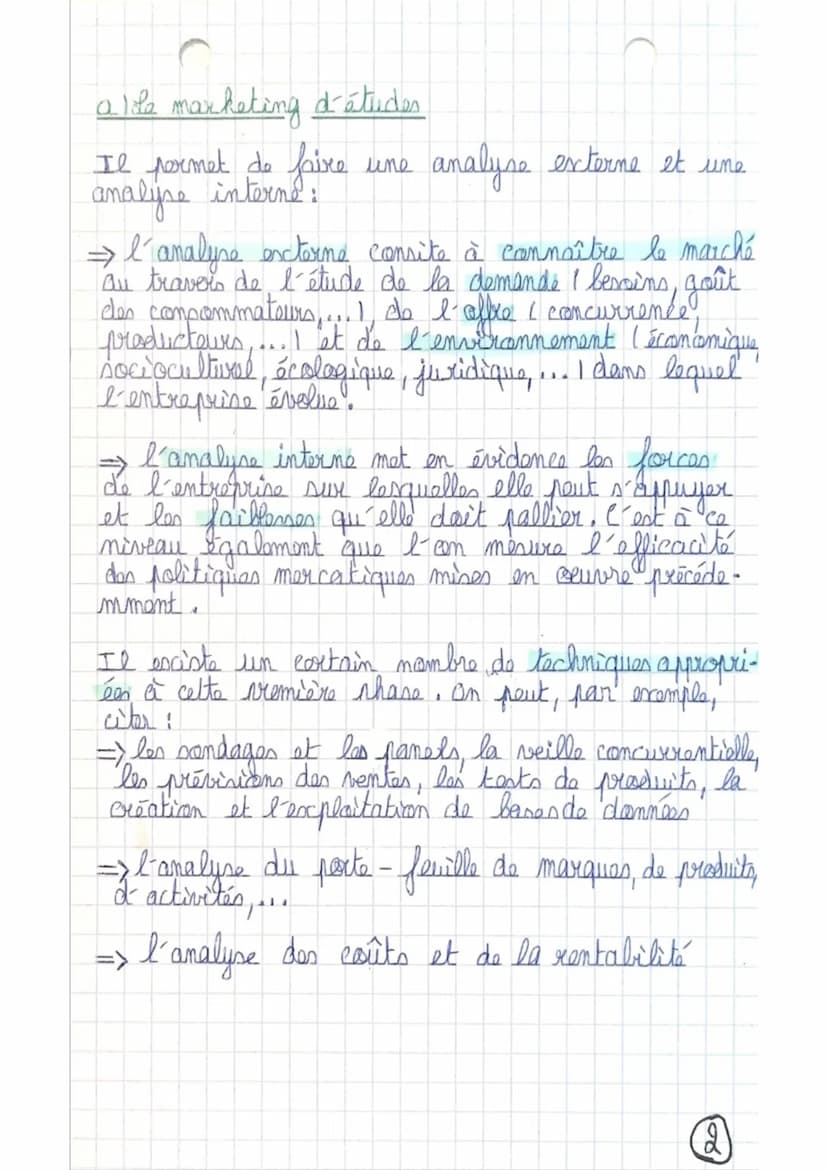 a) Le marketing d'études
Il permet de faire une analyse externe et une
analyse interne :
=> l'analyse externe consite à connaître le marché
au travers de l'étude de la demande ( besoins, goût
des consommateurs,...), de l'offre ( concurrence,
producteurs,...) et de l'environnement (économique,
socioculturel, écologique, juridique,...) dans lequel
l'entreprise évolue.
=> l'analyse interne met en évidence les forces
de l'entreprise sur lesquelles elle peut s'appuyer
et les faiblesses qu'elle doit pallier. C'est à ce
niveau également que l'on mesure l'efficacité
des politiques mercatiques mises en oeuvre précéde-
mment.
Il existe un certain nombre de techniques appropri-
ées à cette première phase. On peut, par exemple,
citer :
=> les sondages et les panels, la veille concurrentielle,
les prévisions des ventes, les tests de produits, la
création et l'exploitation de bases de données
=> l'analyse du porte-feuille de marques, de produits,
d'activités,...
=> l'analyse des coûts et de la rentabilité
2